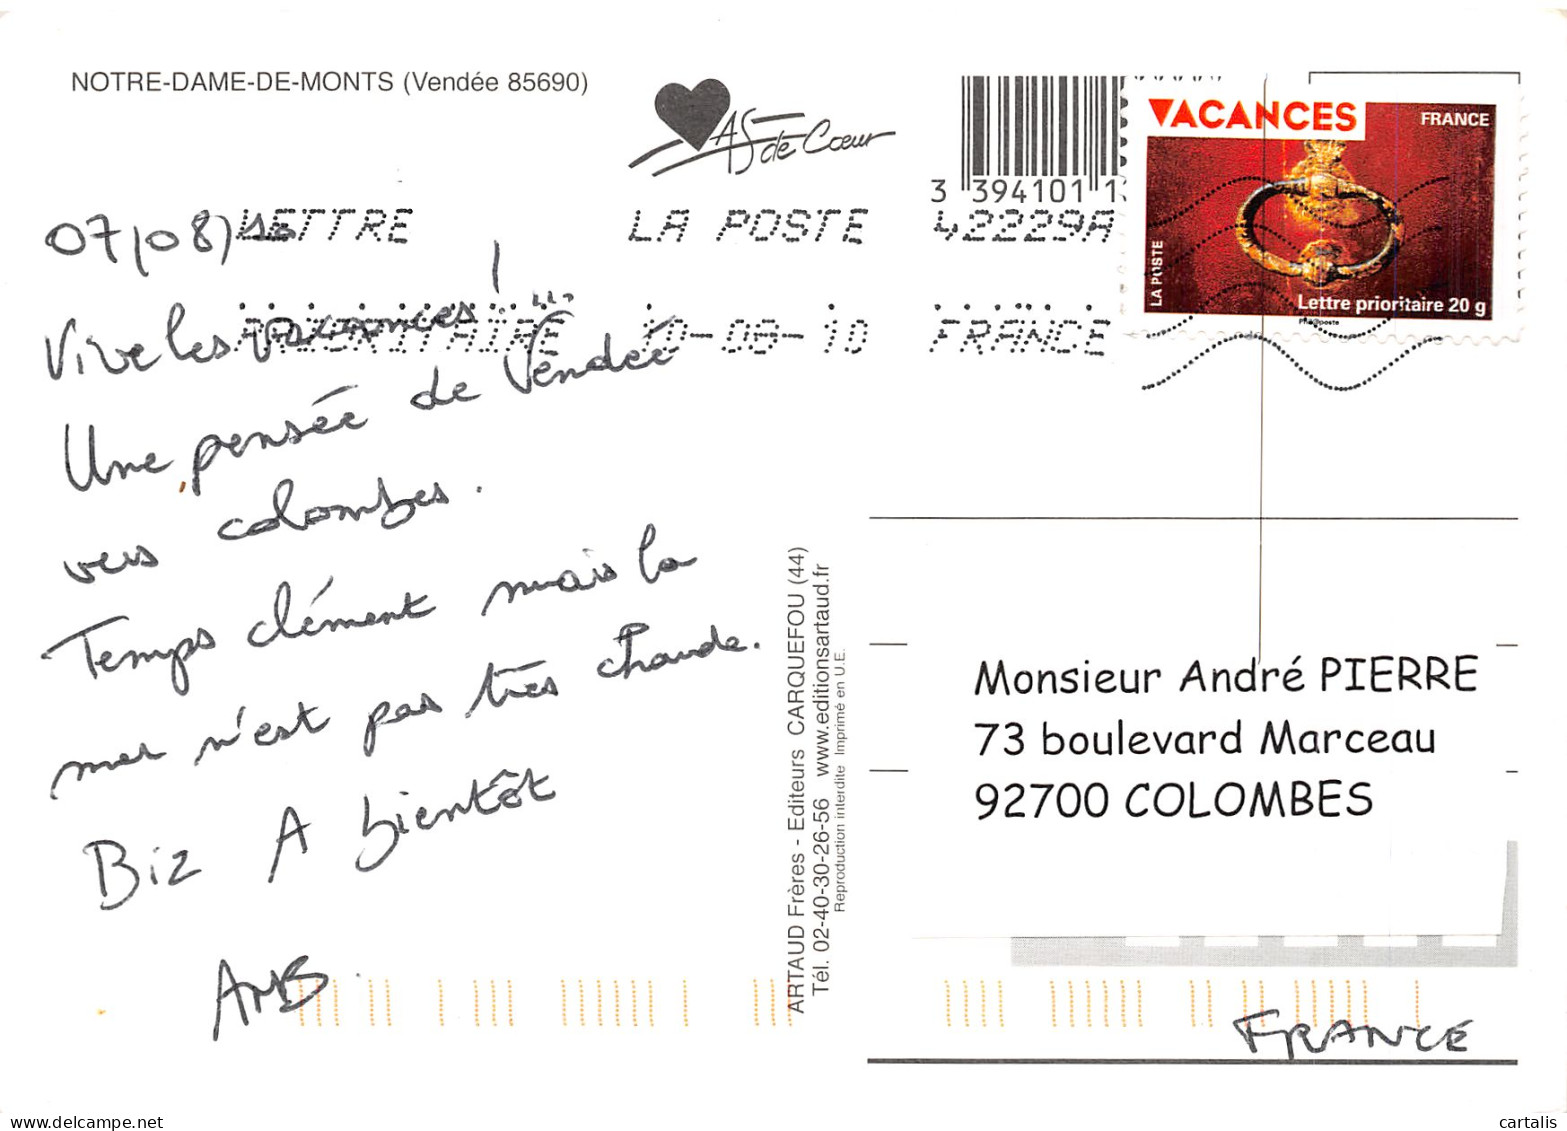 NOTRE-DAME-DE-MONTS (Vendée 85690)
AS de Cœur
3 394101 1
VACANCES
FRANCE
LA POSTE
Lettre prioritaire 20 g
Phil@poste
LETTRE LA POSTE 42229A
PRIORITAIRE 10-08-10 FRANCE
07/08/10
Vive les vacances !
Une pensée de Vendée
vers colombes.
Temps clément mais la
mer n'est pas très chaude.
Biz A bientôt
AMB.
ARTAUD Frères - Editeurs CARQUEFOU (44)
Tél. 02-40-30-26-56 www.editionsartaud.fr
Reproduction interdite Imprimé en U.E.
Monsieur André PIERRE
73 boulevard Marceau
92700 COLOMBES
FRANCE
cartalis